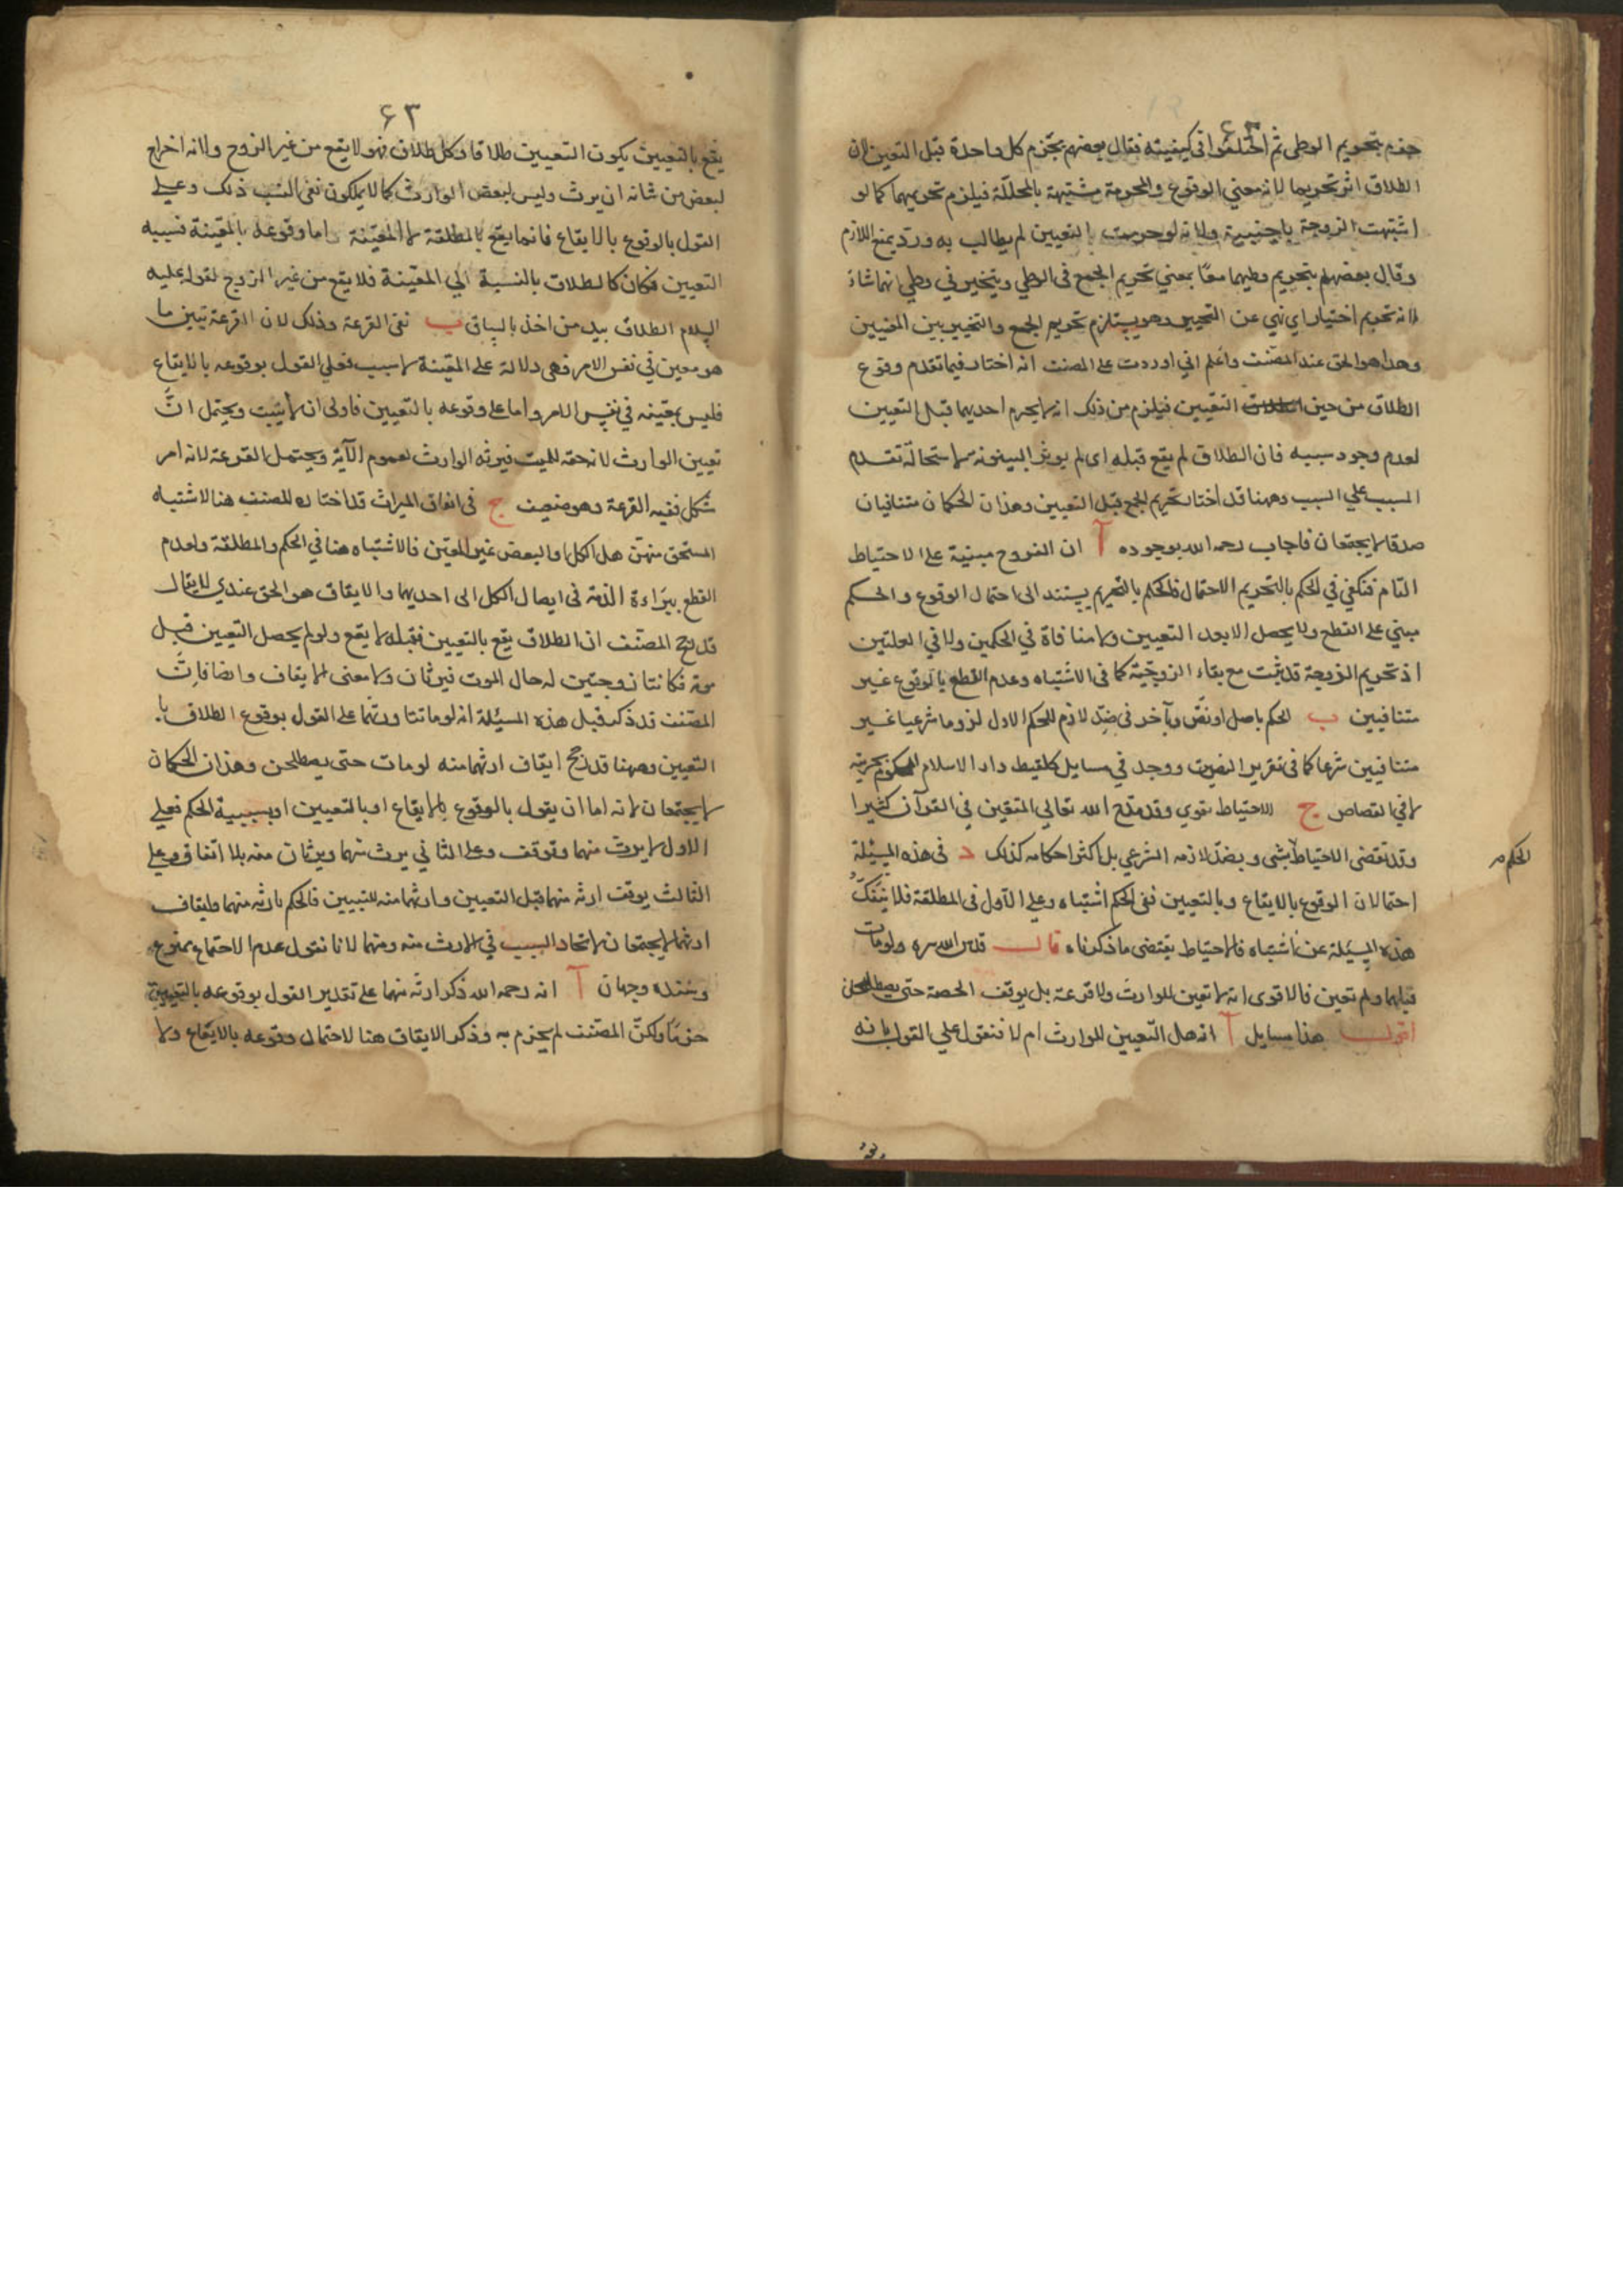 جزم بتحريم الوطى ثم اختلفوا فى كيفيته فقال بعضهم يحرم كل واحدة قبل التعيين لان
الطلاق اثر تحريما لانه معنى الوقوع والمحرمة مشتبهة بالمحللة فيلزم تحريمهما كما لو
اشتبهت الزوجة باجنبية ولانه لو حرمت بالتعيين لم يطالب به ورد بمنع اللازم
وقال بعضهم بتحريم وطيهما معا بمعنى تحريم الجمع فى الوطى ويتخير فى وطى ايهما شاء
لانه تحريم اختيار اى نهى عن التعيين وهو يستلزم تحريم الجمع والتخيير بين المعنيين
وهذا هو الحق عند المصنف واعلم انى اوردت على المصنف انه اختار فيما تقدم وقوع
الطلاق من حين التعيين فيلزم من ذلك انه لا يحرم احديهما قبل التعيين
لعدم وجود سببه فان الطلاق لم يقع قبله اى لم يوثر البينونة لاستحالة تقدم
المسبب على السبب وههنا قد اختار تحريم الجمع قبل التعيين وهذان الحكمان متنافيان
صدقا لا يجتمعان فاجاب رحمه الله بوجوه آ ان الفروج مبنية على الاحتياط
التام فيكفى فى الحكم بالتحريم الاحتمال فالحكم بالتحريم يستند الى احتمال الوقوع والحكم
مبنى على القطع ولا يحصل الا بعد التعيين ولا منافاة فى الحكمين ولا فى العلتين
اذ تحريم الزوجة قد يثبت مع بقاء الزوجية كما فى الاشتباه وعدم القطع بالوقوع غير
متنافيين ب الحكم باصل او نص وبآخر فى ضد لازم للحكم الاول لزوما شرعيا غير
متنافيين شرعا كما فى تقرير النصين ووجد فى مسايل كلقيط دار الاسلام المحكوم بحريته
لا فى القصاص ج الاحتياط تقوى وقد مدح الله تعالى المتقين فى القرآن كثيرا
وقد يقتضى الاحتياط الحكم بشى وبضد لازمه الشرعى بل اكثر احكامه كذلك د فى هذه المسئلة
احتمالان الوقوع بالايقاع وبالتعيين ففى الحكم اشتباه وعلى الاول فى المطلقة فلا ينفك
هذه المسئلة عن اشتباه فالاحتياط يقتضى ما ذكرناه قال قدس الله سره ولو مات
قبلهما ولم تعين فالاقوى انه لا تعين للوارث ولا قرعة بل يوقف الحصة حتى يصطلحن
اقول هذا مسايل آ انه هل التعيين للوارث ام لا فنقول على القول بانه
۶۳
يقع بالتعيين يكون التعيين طلاقا وكل طلاق فهو لا يقع من غير الزوج ولانه اخراج
لبعض من شانه ان يرث وليس لبعض الوارث كما لا يملكون نفى النسب ذلك وعلى
القول بالوقوع بالايقاع فانما يقع بالمطلقة لا المعينة واما وقوعه بالمعينة فسببه
التعيين فكان كالطلاق بالنسبة الى المعينة فلا يقع من غير الزوج لقوله عليه
السلام الطلاق بيد من اخذ بالساق ب نفى القرعة وذلك لان القرعة تبين ما
هو معين فى نفس الامر فهى دلالة على المعينة لا سبب فعلى القول بوقوعه بالايقاع
فليس بمعينة فى نفس الامر واما على وقوعه بالتعيين فاولى ان لا يثبت ويحتمل ان
تعيين الوارث لانه حقه للميت فيرثه الوارث لعموم الآية ويحتمل القرعة لانه امر
مشكل ففيه القرعة وهو ضعيف ج فى ايقاف الميراث قد اختاره المصنف هنا لاشتباه
المستحق منهن هل الكل او البعض غير المعين فالاشتباه هنا فى الحكم والمطلقة ولعدم
القطع ببراءة الذمة فى ايصال الكل الى احديهما والايقاف هو الحق عندى لا يقال
قد رجح المصنف ان الطلاق يقع بالتعيين فقبله لا يقع ولو لم يحصل التعيين قبل
موته فكانتا زوجتين له حال الموت فيرثان ولا معنى للايقاف وايضا فان
المصنف قد ذكر قبل هذه المسئلة انه لو ماتتا ورثهما على القول بوقوع الطلاق با
التعيين وههنا قد رجح ايقاف ارثهما منه لو مات حتى يصطلحن وهذان الحكمان
لا يجتمعان لانه اما ان يقول بالوقوع بالايقاع او بالتعيين او بسببية الحكم فعلى
الاول لا يرث منهما وتوقف وعلى الثانى يرث منهما ويرثان منه بلا ايقاف وعلى
الثالث يوقف ارثه منهما قبل التعيين وارثهما منه للتبيين فالحكم بارثه منهما وايقاف
ارثهما لا يجتمعان لاتحاد السبب فى الارث منه ومنهما لانا نقول عدم الاجتماع ممنوع
وسنده وجهان آ انه رحمه الله ذكر ارثه منهما على تقدير القول بوقوعه بالتعيين
جزما ولكن المصنف لم يجزم به وذكر الايقاف هنا لاحتمال وقوعه بالايقاع ولا